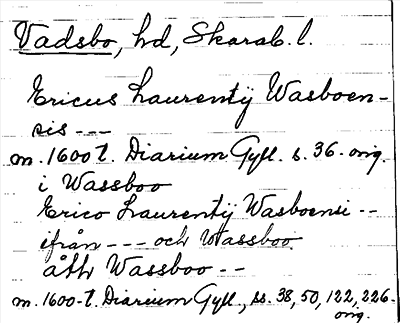 Vadsbo, hd, Skarab. l.
Ericus Laurentÿ Wasboen-
sis ---
m. 1600 t. Diarium Gyll. s. 36. orig.
i Wassboo
Erico Laurentÿ Wasboensi --
ifrån --- och Wassboo
åth Wassboo --
m. 1600-t. Diarium Gyll., ss. 38, 50, 122, 226.
orig.